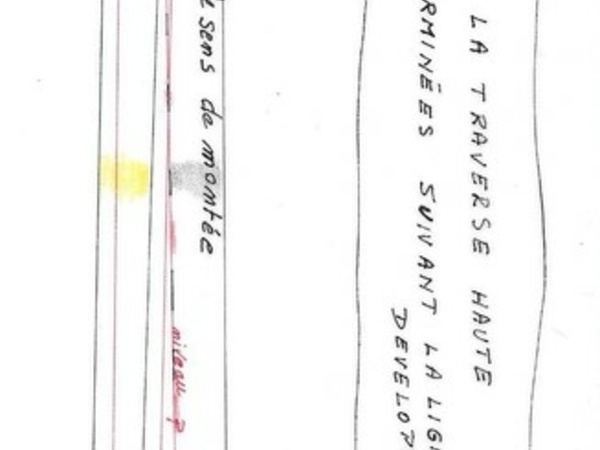 LA TRAVERSE HAUTE
RMINÉES SUIVANT LA LIG
DEVELOP
sens de montée
niveau